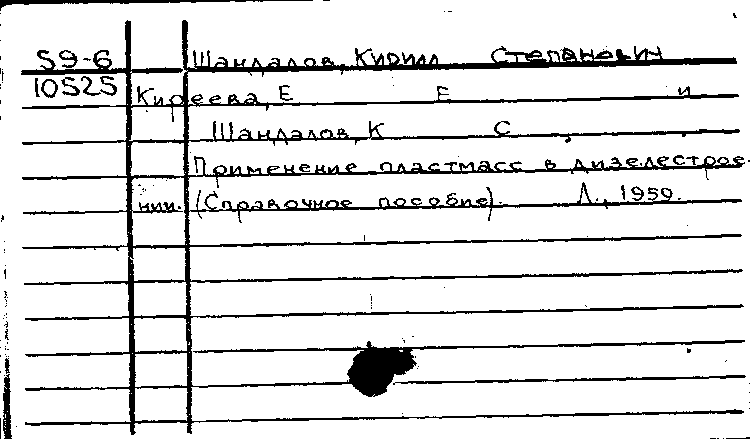 59-6 Шандалов, Кирилл Степанович
10525 Киреева, Е Е и
Шандалов, К С.
Применение пластмасс в дизелестрое-
нии. (Справочное пособие). Л., 1959.